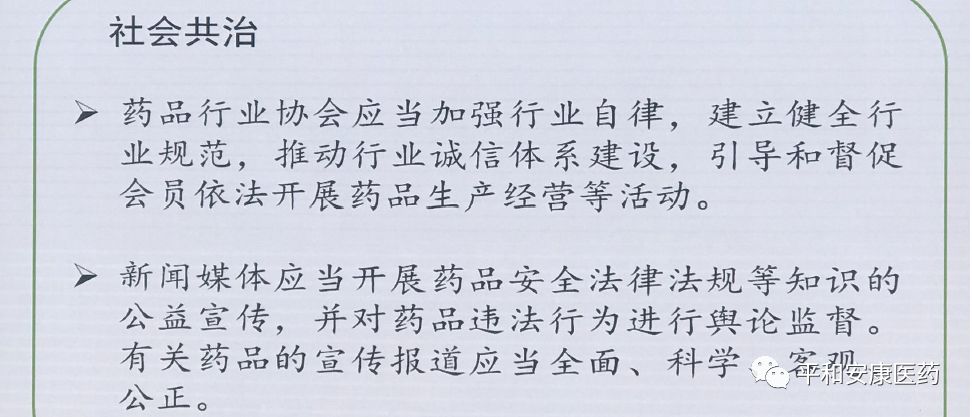 社会共治
药品行业协会应当加强行业自律，建立健全行
业规范，推动行业诚信体系建设，引导和督促
会员依法开展药品生产经营等活动。
新闻媒体应当开展药品安全法律法规等知识的
公益宣传，并对药品违法行为进行舆论监督。
有关药品的宣传报道应当全面、科学、客观、
公正。
平和安康医药